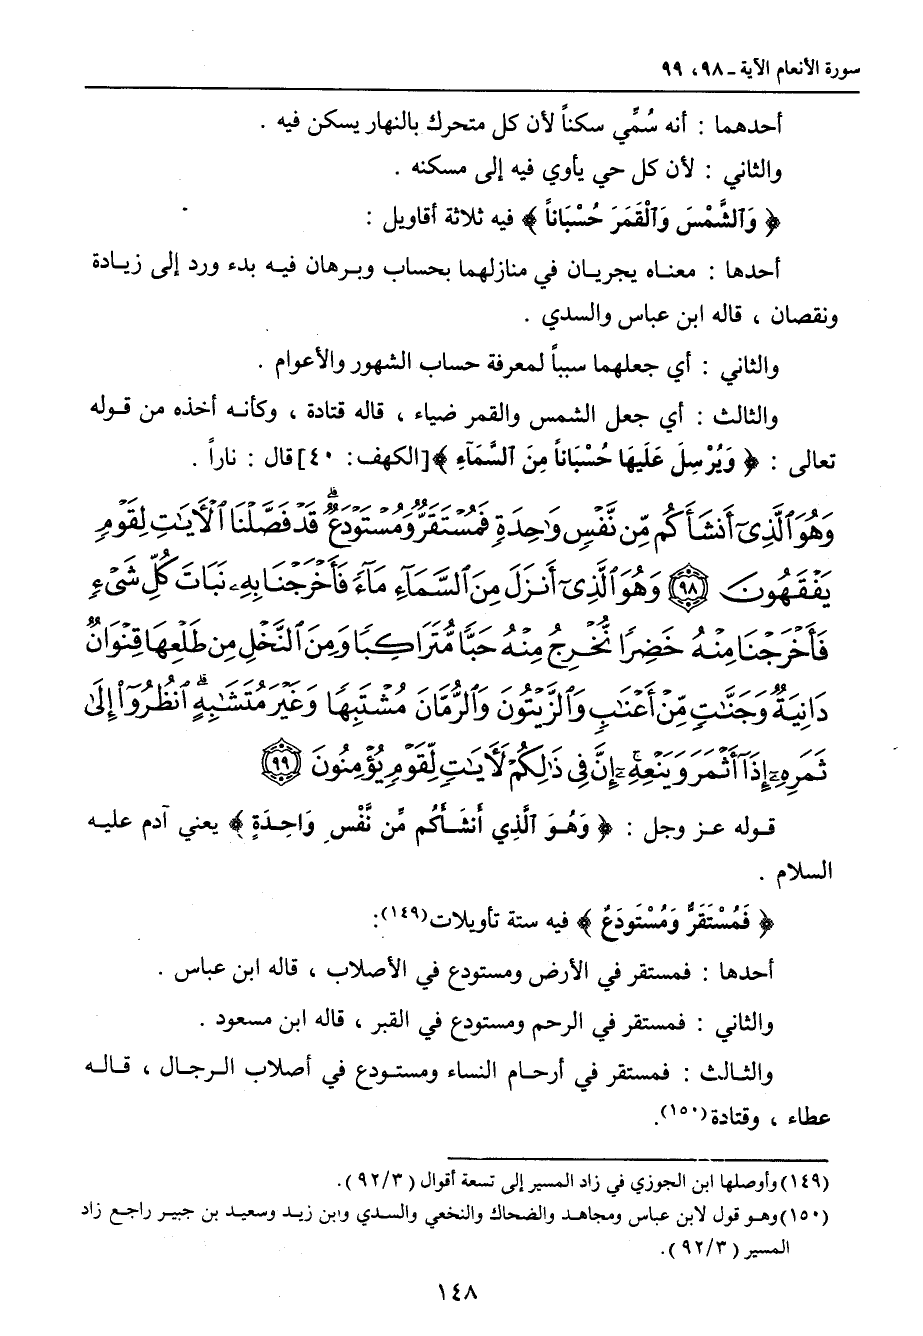 سورة الأنعام الآية ـ ٩٨، ٩٩
أحدهما : أنه سُمِّي سكناً لأن كل متحرك بالنهار يسكن فيه .
والثاني : لأن كل حي يأوي فيه إلى مسكنه .
﴿ وَٱلشَّمْسَ وَٱلْقَمَرَ حُسْبَاناً ﴾ فيه ثلاثة أقاويل :
أحدها : معناه يجريان في منازلهما بحساب وبرهان فيه بدء ورد إلى زيادة
ونقصان ، قاله ابن عباس والسدي .
والثاني : أي جعلهما سبباً لمعرفة حساب الشهور والأعوام .
والثالث : أي جعل الشمس والقمر ضياء ، قاله قتادة ، وكأنه أخذه من قوله
تعالى : ﴿ وَيُرْسِلَ عَلَيهَا حُسْبَاناً مِنَ السَّمَآءِ ﴾[الكهف: ٤٠] قال : ناراً .
وَهُوَ ٱلَّذِىٓ أَنشَأَكُم مِّن نَّفْسٍ وَٰحِدَةٍ فَمُسْتَقَرٌّ وَمُسْتَوْدَعٌ ۗ قَدْ فَصَّلْنَا ٱلْـَٔايَـٰتِ لِقَوْمٍ
يَفْقَهُونَ ﴿٩٨﴾ وَهُوَ ٱلَّذِىٓ أَنزَلَ مِنَ ٱلسَّمَآءِ مَآءً فَأَخْرَجْنَا بِهِۦ نَبَاتَ كُلِّ شَىْءٍ
فَأَخْرَجْنَا مِنْهُ خَضِرًا نُّخْرِجُ مِنْهُ حَبًّا مُّتَرَاكِبًا وَمِنَ ٱلنَّخْلِ مِن طَلْعِهَا قِنْوَانٌ
دَانِيَةٌ وَجَنَّـٰتٍ مِّنْ أَعْنَابٍ وَٱلزَّيْتُونَ وَٱلرُّمَّانَ مُشْتَبِهًا وَغَيْرَ مُتَشَـٰبِهٍ ۗ ٱنظُرُوٓا۟ إِلَىٰ
ثَمَرِهِۦٓ إِذَآ أَثْمَرَ وَيَنْعِهِۦٓ ۚ إِنَّ فِى ذَٰلِكُمْ لَـَٔايَـٰتٍ لِّقَوْمٍ يُؤْمِنُونَ ﴿٩٩﴾
قوله عز وجل : ﴿ وَهُوَ ٱلَّذِي أَنشَأَكُم مِّن نَّفْسٍ وَاحِدَةٍ ﴾ يعني آدم عليه
السلام .
﴿ فَمُسْتَقَرٌّ وَمُسْتَودَعٌ ﴾ فيه ستة تأويلات(١٤٩):
أحدها : فمستقر في الأرض ومستودع في الأصلاب ، قاله ابن عباس .
والثاني : فمستقر في الرحم ومستودع في القبر ، قاله ابن مسعود .
والثالث : فمستقر في أرحام النساء ومستودع في أصلاب الرجال ، قاله
عطاء ، وقتادة(١٥٠).
(١٤٩) وأوصلها ابن الجوزي في زاد المسير إلى تسعة أقوال (٩٢/٣).
(١٥٠) وهو قول لابن عباس ومجاهد والضحاك والنخعي والسدي وابن زيد وسعيد بن جبير راجع زاد
المسير (٩٢/٣).
١٤٨